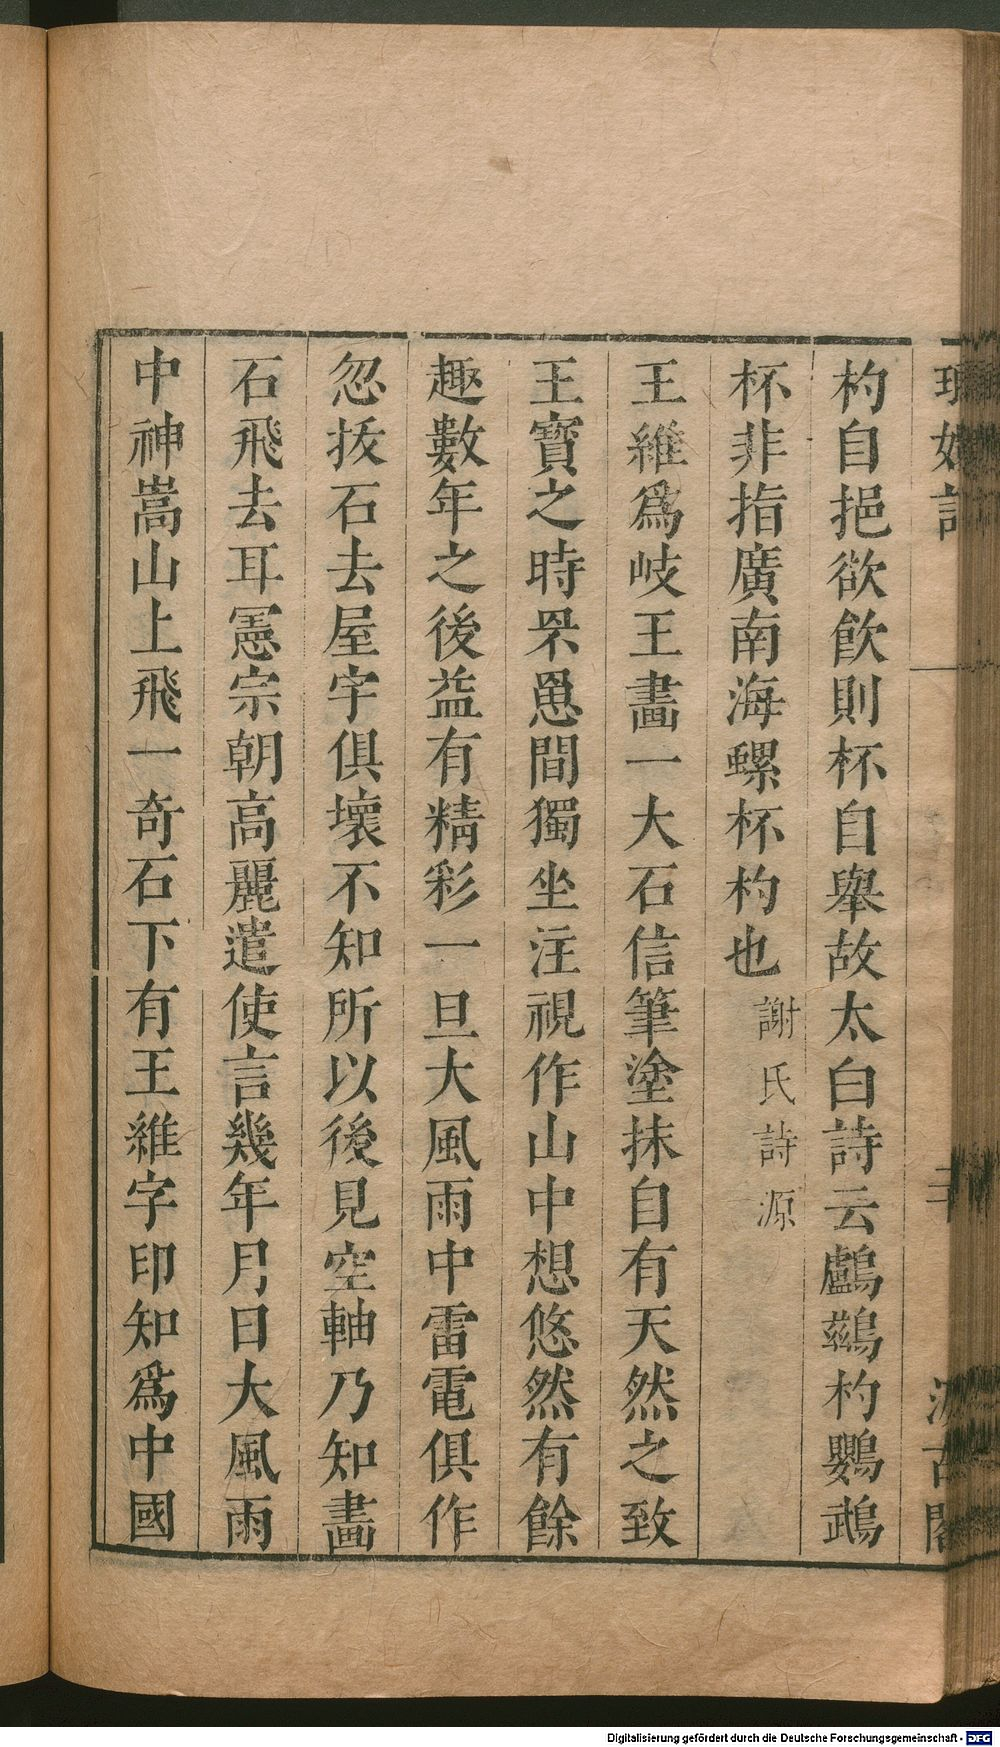 杓自挹欲飮則杯自舉故太白詩云鸕鷀杓鸚鵡
杯非指廣南海螺杯杓也謝氏詩源
王維爲岐王畫一大石信筆塗抹自有天然之致
王寶之時罘罳間獨坐注視作山中想悠然有餘
趣數年之後益有精彩一旦大風雨中雷電俱作
忽拔石去屋宇俱壞不知所以後見空軸乃知畵
石飛去耳憲宗朝高麗遣使言幾年月日大風雨
中神嵩山上飛一奇石下有王維字印知爲中國
Digitalisierung gefördert durch die Deutsche Forschungsgemeinschaft - DFG